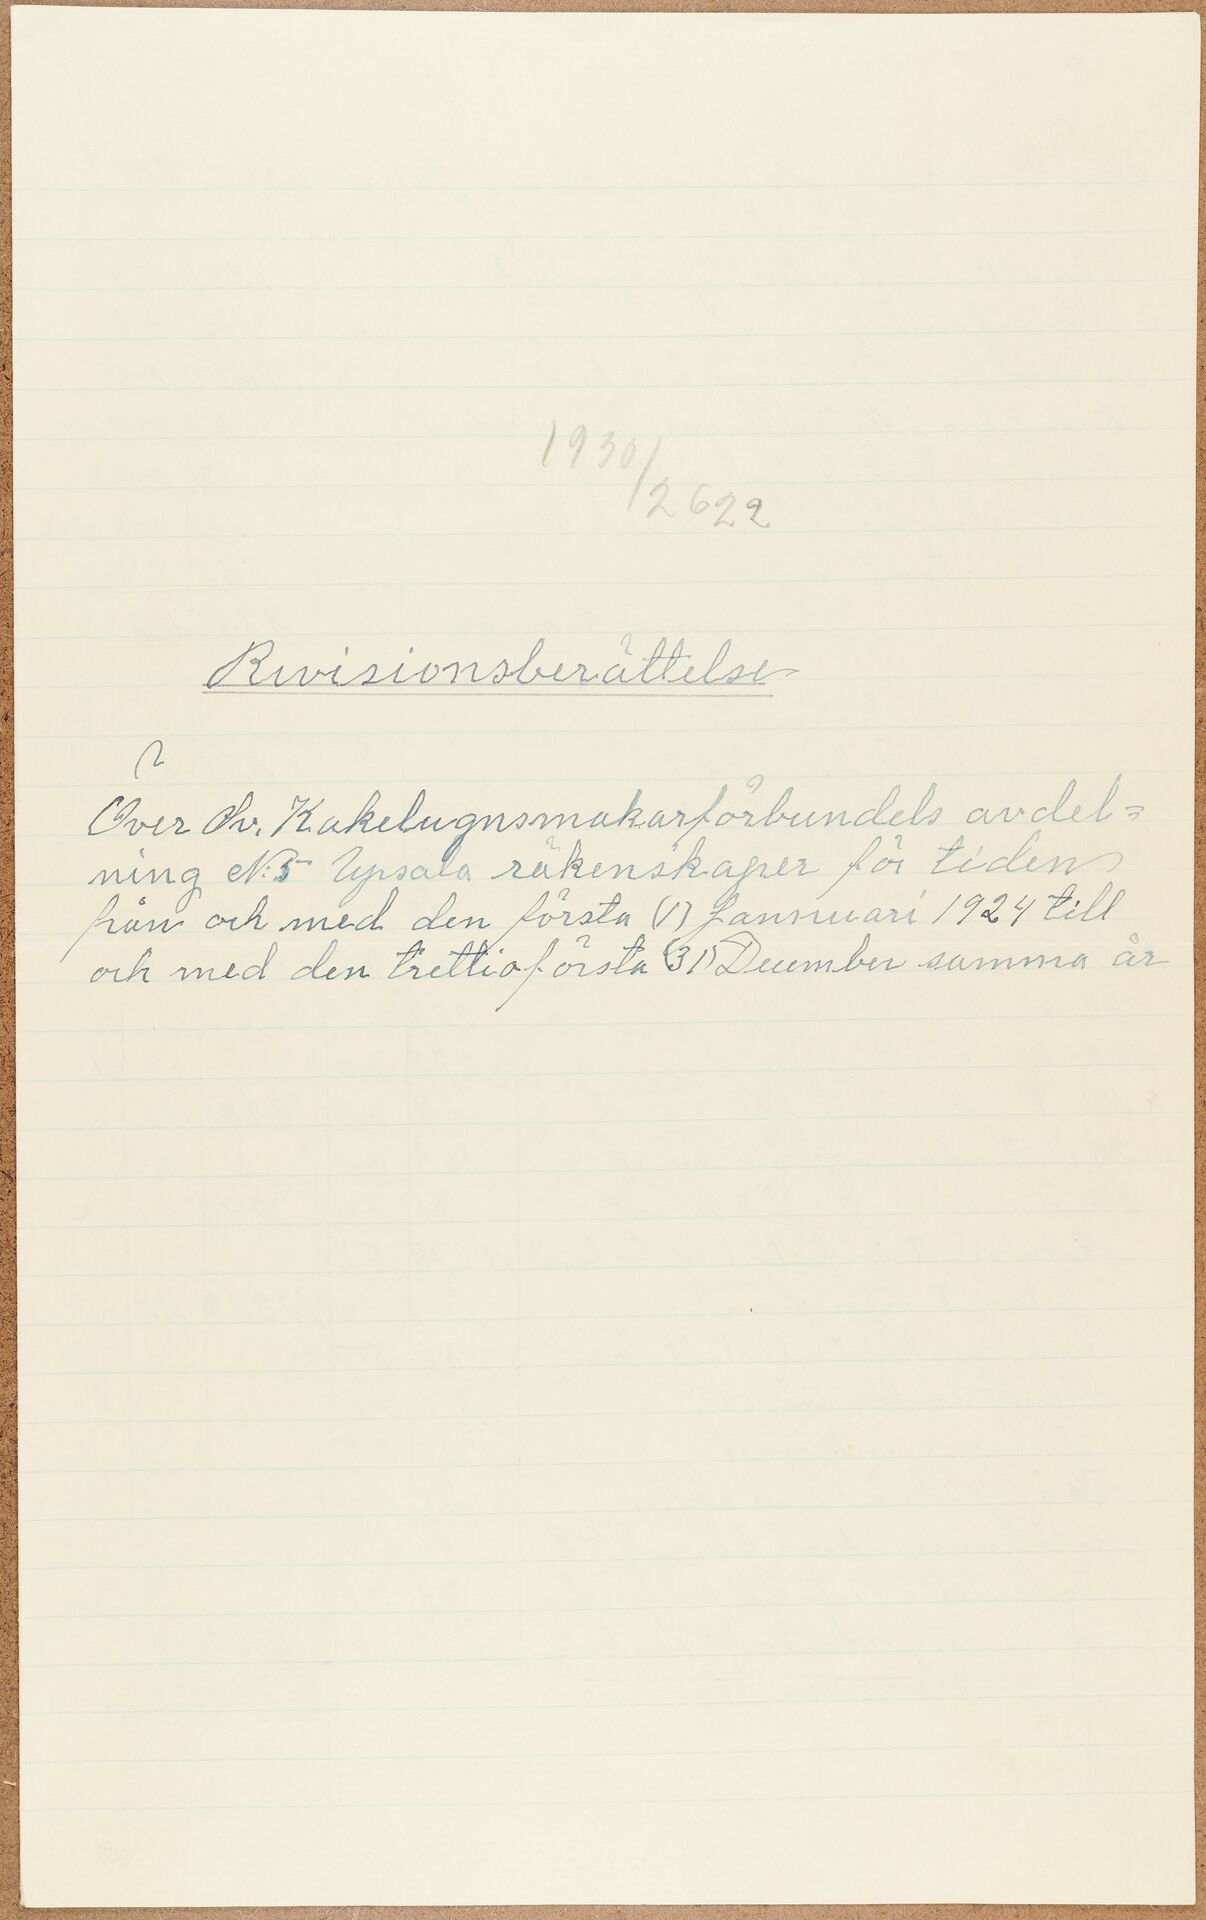 1930/
2622
Revisionsberättelse
Över Sv. Kakelugnsmakarförbundels avdel=
ning N:5 Upsala räkenskaper för tiden
från och med den första (1) Jannuari 1924 till
och med den trettioförsta (31) December samma år